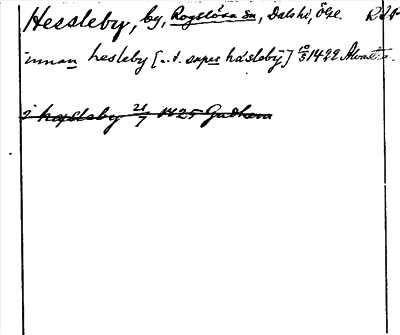 Hessleby, by, Rogslösa sn, Dalshd, Ög.
innan hesleby [..t. super häsleby] 10/3 1422 Alvastra.
i häsleby 21/7 1425 Gudhem